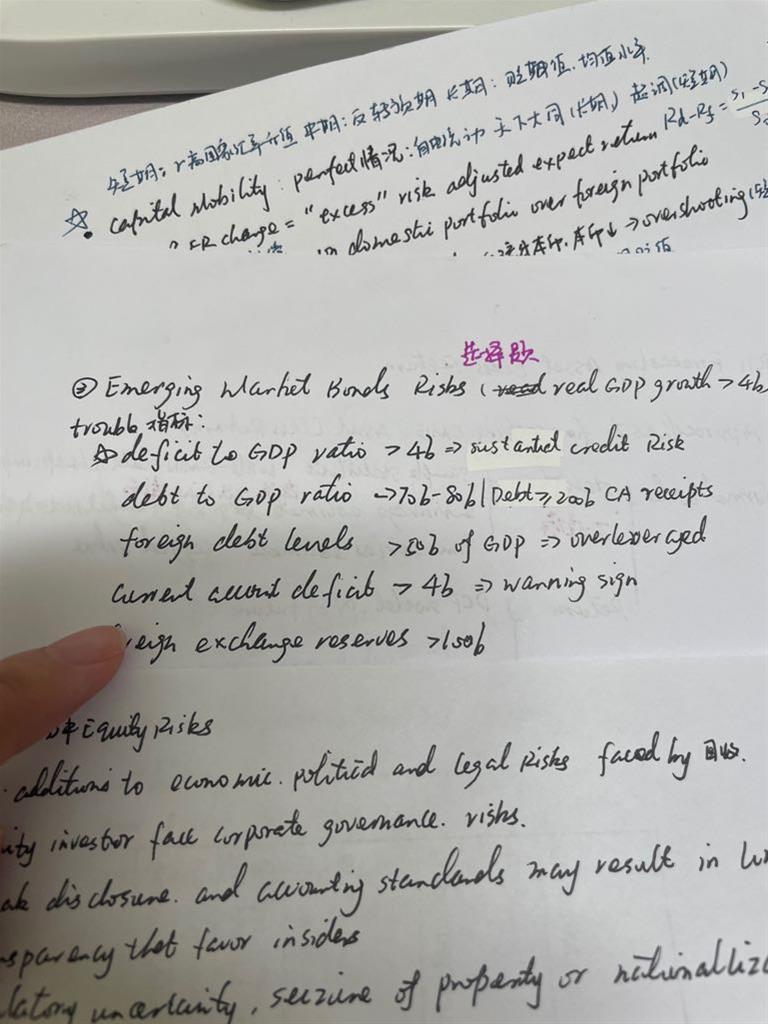 短期: r高国家汇率升值 中期: 反转效期 长期: 贬期值. 均值水平
☆• capital Mobility : perfect情况: 自由流动 天下大同(长期) 超调(短期)
ER change = "excess" risk adjusted expect return Rd-Rf = S₁ - S
in domestic portfolio over foreign portfolio
→ overshooting
选择题
② Emerging Market Bonds Risks ( real GDP growth > 4%
trouble 指标:
☆ deficit to GDP ratio > 4% ⇒ sustantial credit Risk
debt to GDP ratio → 70% - 80% | Debt ≥ 200% CA receipts
foreign debt levels > 50% of GDP ⇒ overleveraged
current account deficit > 4% ⇒ wanning sign
reign exchange reserves > 100%
Equity Risks
additions to economic. political and legal Risks faced by
ity investor face corporate governance. risks.
ak disclosure. and accounting standards may result in
nsparency that favor insiders
latory uncertainty, seizure of property or nationalliza